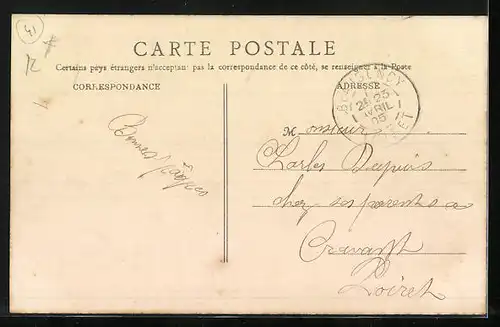 41
CARTE POSTALE
Certains pays étrangers n'acceptant pas la correspondance de ce côté, se renseigner à la Poste
CORRESPONDANCE
ADRESSE
BEAUGENCY
23
AVRIL
05
LOIRET
Monsieur
Bonnes Pâques
Charles Dupuis
chez ses parents à
Cravant
Loiret